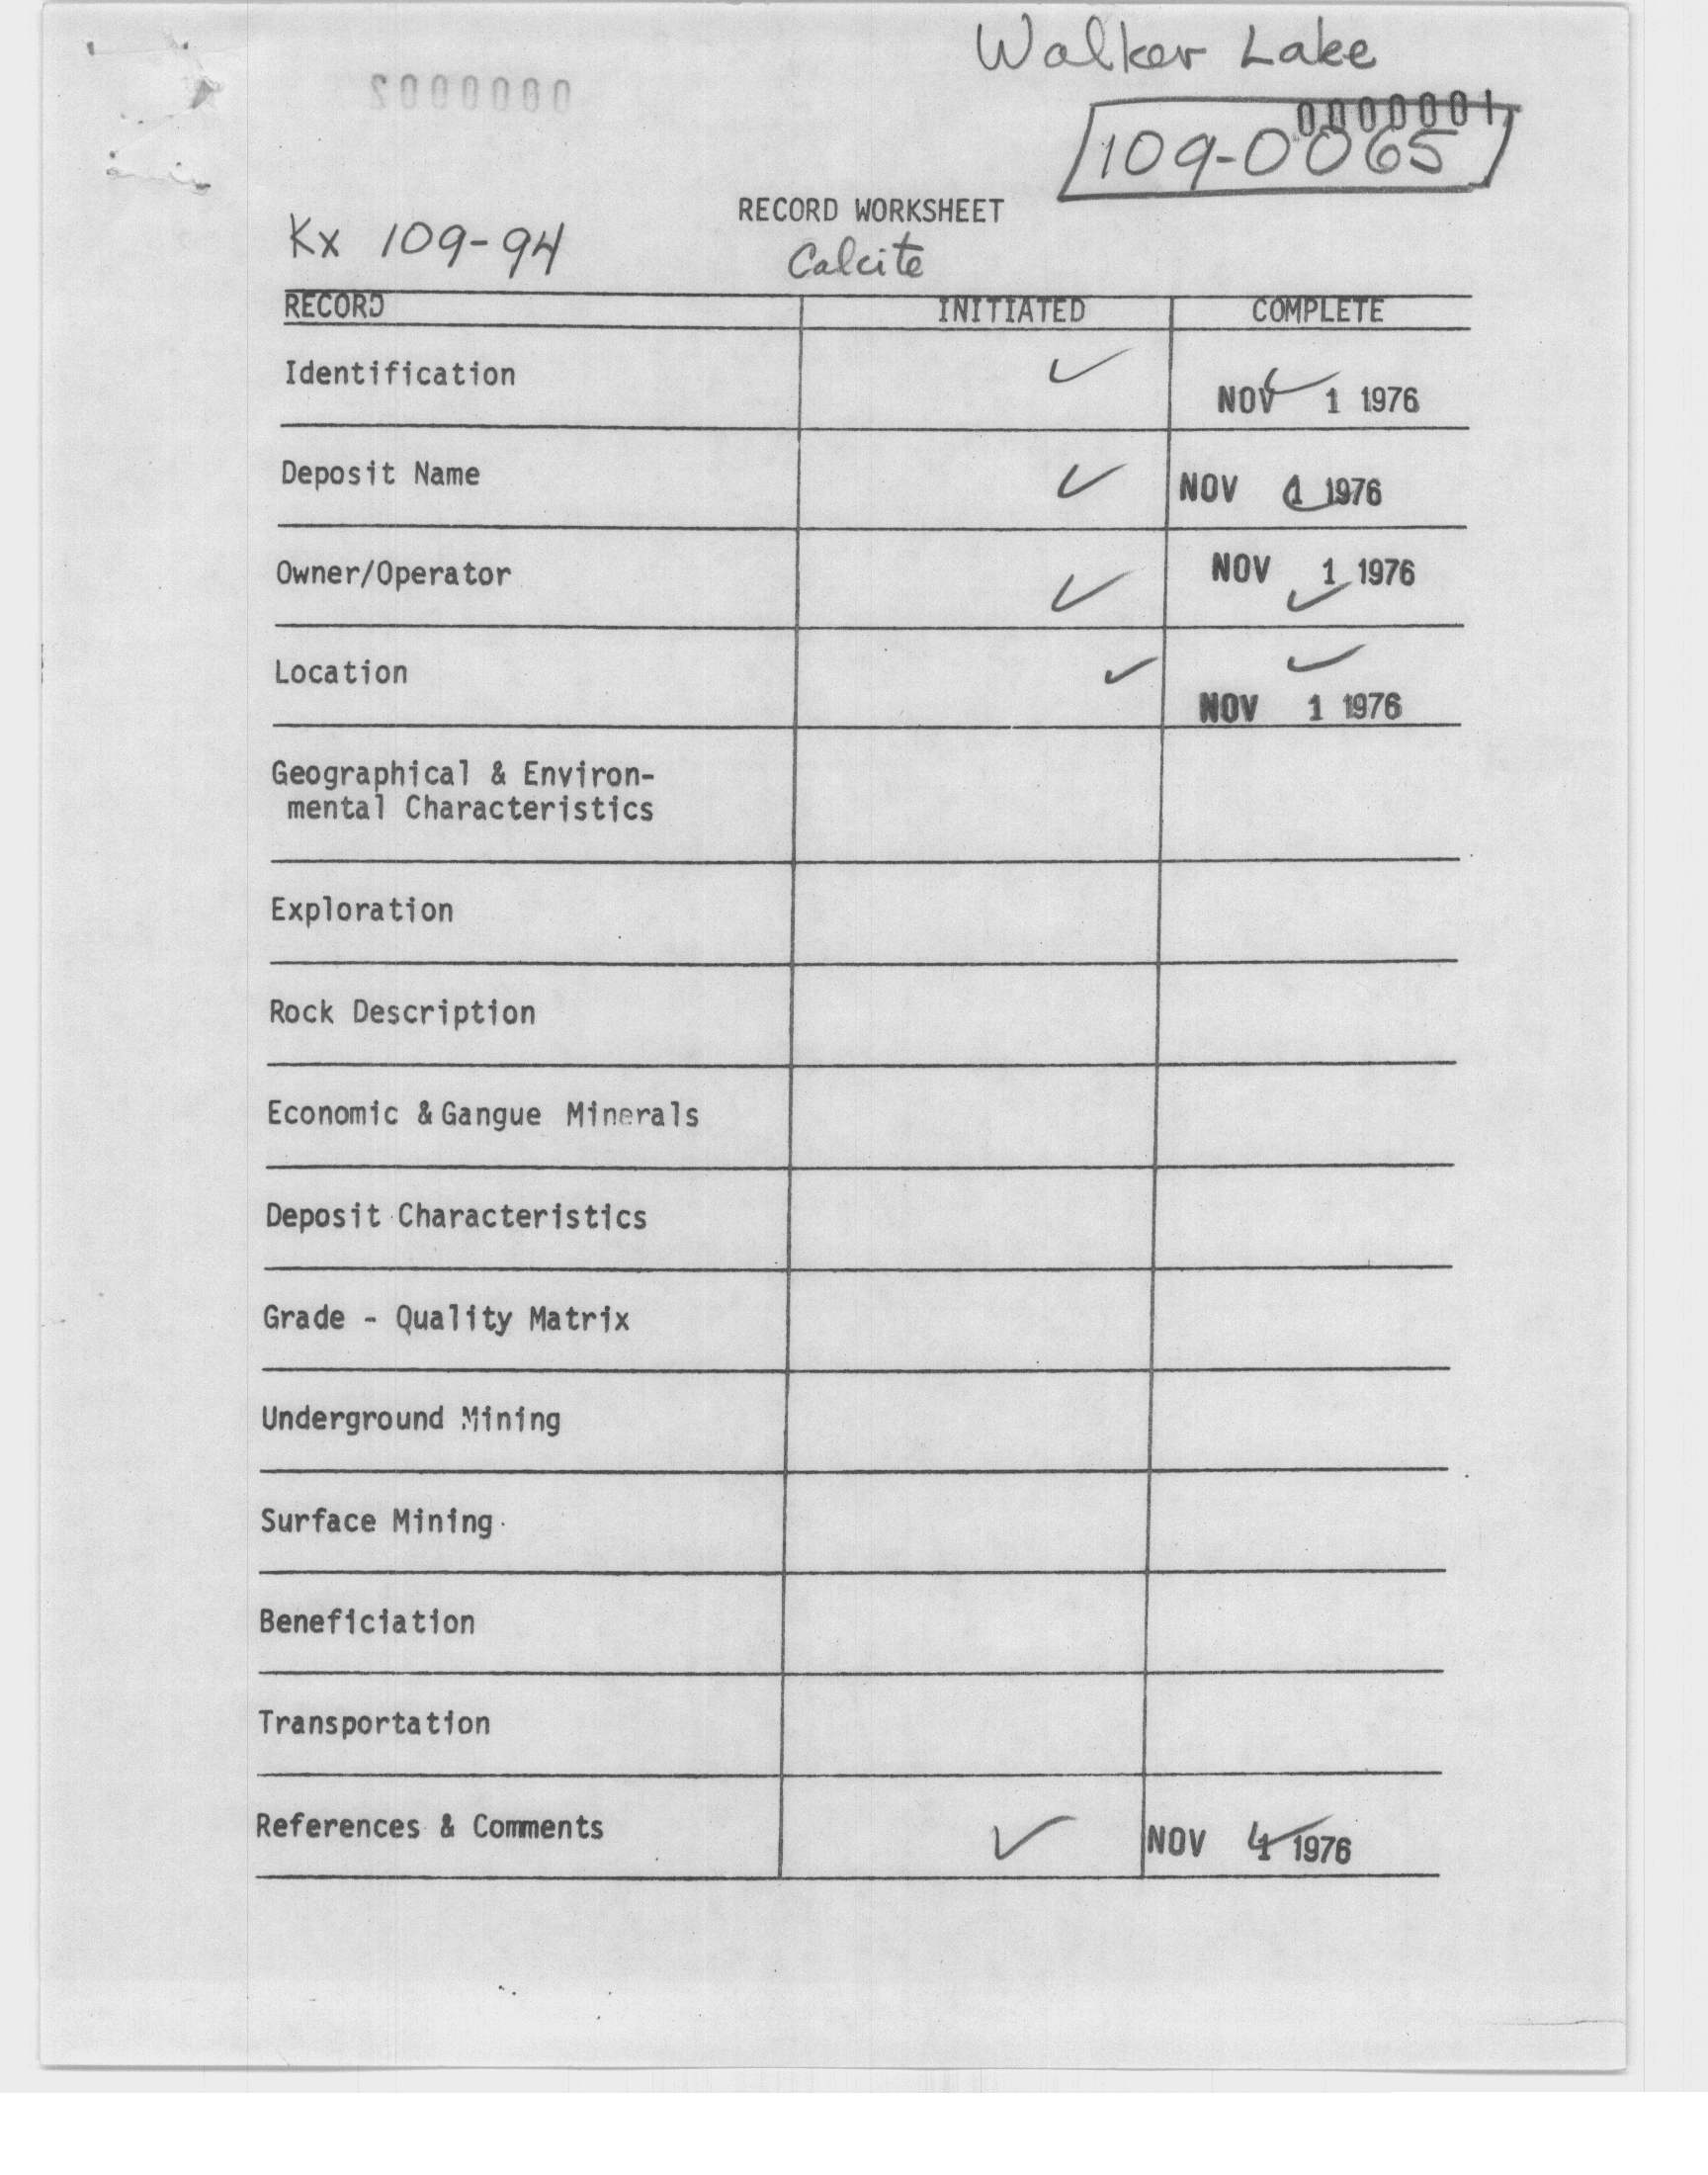 Walker Lake
0000002
0000001
109-0065
RECORD WORKSHEET
Kx 109-94
Calcite
RECORD INITIATED COMPLETE
Identification ✓ NOV 1 1976 ✓
Deposit Name ✓ NOV 1 1976 ✓
Owner/Operator ✓ NOV 1 1976 ✓
Location ✓ ✓ NOV 1 1976
Geographical & Environ-
mental Characteristics
Exploration
Rock Description
Economic & Gangue Minerals
Deposit Characteristics
Grade - Quality Matrix
Underground Mining
Surface Mining
Beneficiation
Transportation
References & Comments ✓ NOV 1 1976 ✓